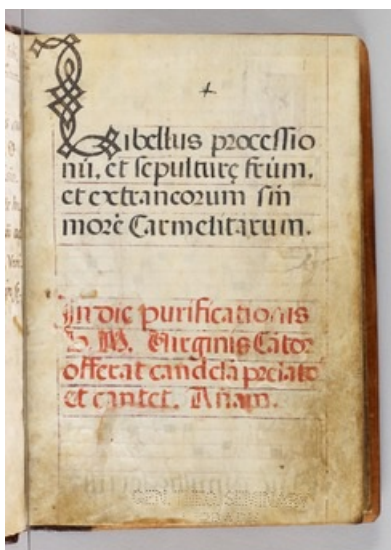 Libellus processio
nū, et sepulturę frūm,
et extraneorum sīn
morē Carmelitarum.
In die purificationis
B. M. Virginis Cator
offerat candelā prelato
et cantet. Añam.